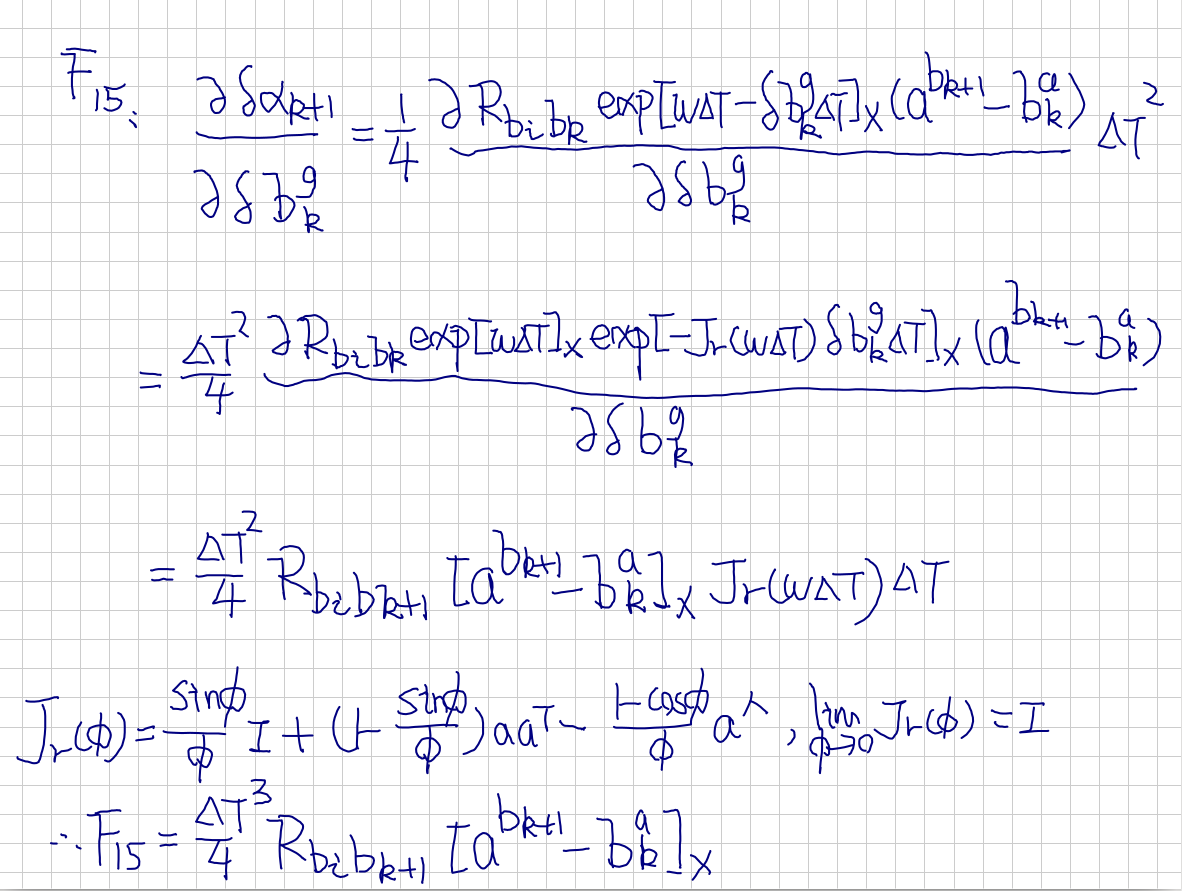 F₁₅: ∂δα_{k+1} / ∂δb_k^g = 1/4 ∂R_{b_i b_k} exp[wΔT − δb_k^gΔT]_× (a^{b_{k+1}} − b_k^a) / ∂δb_k^g ΔT²
= ΔT²/4 ∂R_{b_i b_k} exp[wΔT]_× exp[−J_r(wΔT)δb_k^gΔT]_× (a^{b_{k+1}} − b_k^a) / ∂δb_k^g
= ΔT²/4 R_{b_i b_{k+1}} [a^{b_{k+1}} − b_k^a]_× J_r(wΔT)ΔT
J_r(ϕ) = sinϕ/ϕ I + (1 − sinϕ/ϕ)aa^T − 1−cosϕ/ϕ a^∧, lim_{ϕ→0} J_r(ϕ) = I
∴ F₁₅ = ΔT³/4 R_{b_i b_{k+1}} [a^{b_{k+1}} − b_k^a]_×